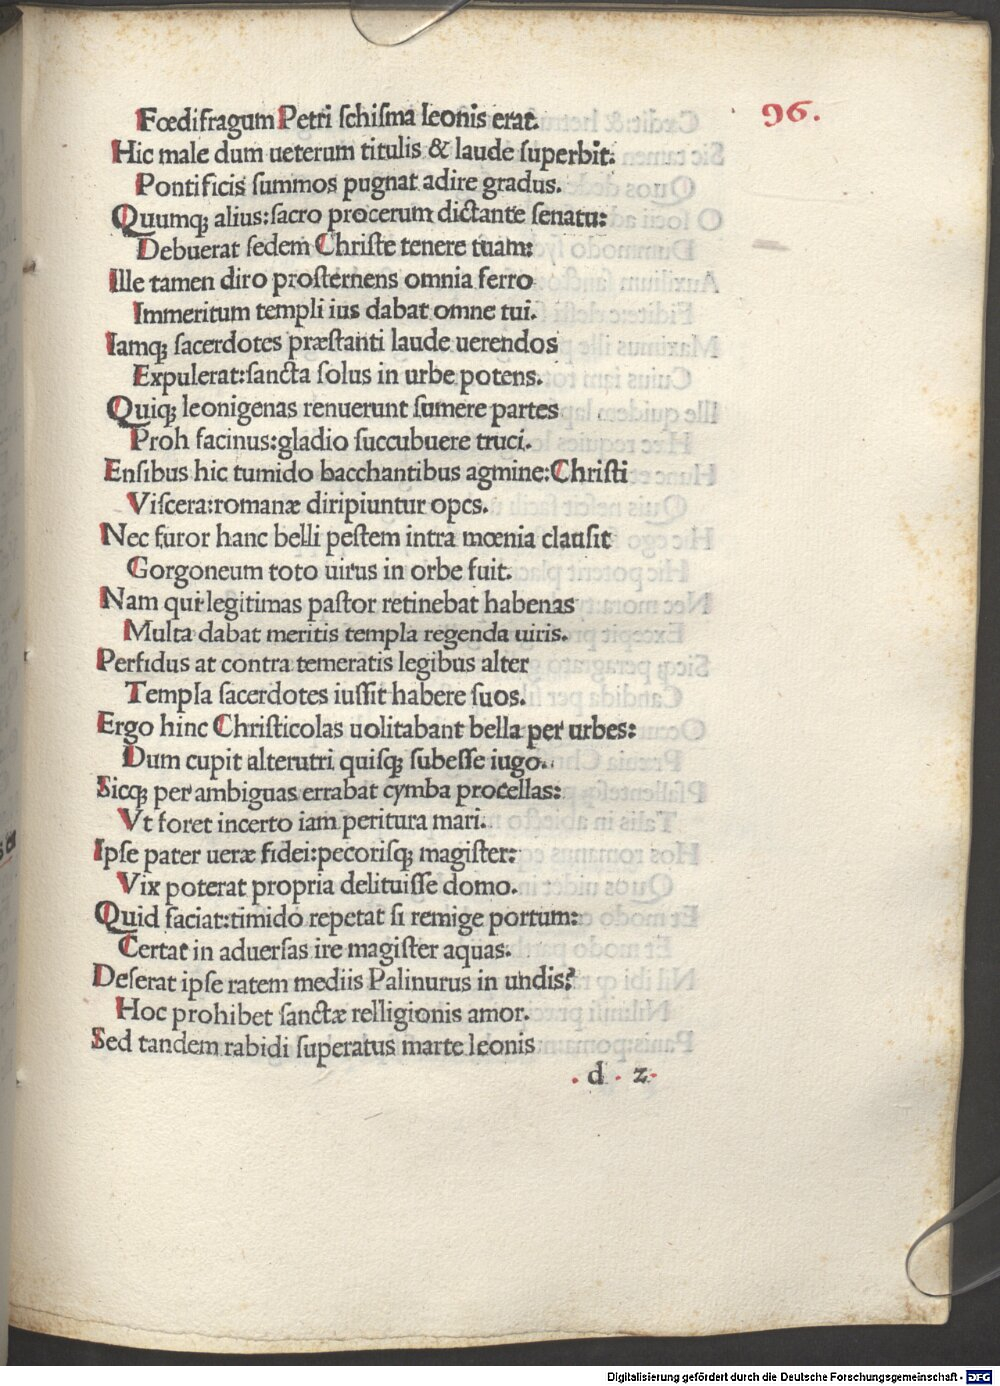 96.
Fœdifragum Petri ſchiſma leonis erat.
Hic male dum ueterum titulis & laude ſuperbit:
Pontificis ſummos pugnat adire gradus.
Quumq; alius:ſacro procerum dictante ſenatu:
Debuerat ſedem Chriſte tenere tuam:
Ille tamen diro proſternens omnia ferro
Immeritum templi ius dabat omne tui.
Iamq; ſacerdotes præſtanti laude uerendos
Expulerat:ſancta ſolus in urbe potens.
Quiq; leonigenas renuerunt ſumere partes
Proh facinus:gladio ſuccubuere truci.
Enſibus hic tumido bacchantibus agmine:Chriſti
Viſcera:romanæ diripiuntur opes.
Nec furor hanc belli peſtem intra mœnia clauſit
Gorgoneum toto uirus in orbe fuit.
Nam qui legitimas paſtor retinebat habenas
Multa dabat meritis templa regenda uiris.
Perfidus at contra temeratis legibus alter
Templa ſacerdotes iuſſit habere ſuos.
Ergo hinc Chriſticolas uolitabant bella per urbes:
Dum cupit alterutri quiſq; ſubeſſe iugo.
Sicq; per ambiguas errabat cymba procellas:
Vt foret incerto iam peritura mari.
Ipſe pater ueræ fidei:pecoriſq; magiſter:
Vix poterat propria delituiſſe domo.
Quid faciat:timido repetat ſi remige portum:
Certat in aduerſas ire magiſter aquas.
Deſerat ipſe ratem mediis Palinurus in undis?
Hoc prohibet ſanctæ relligionis amor.
Sed tandem rabidi ſuperatus marte leonis
. d . 2.
Digitalisierung gefördert durch die Deutsche Forschungsgemeinschaft - DFG